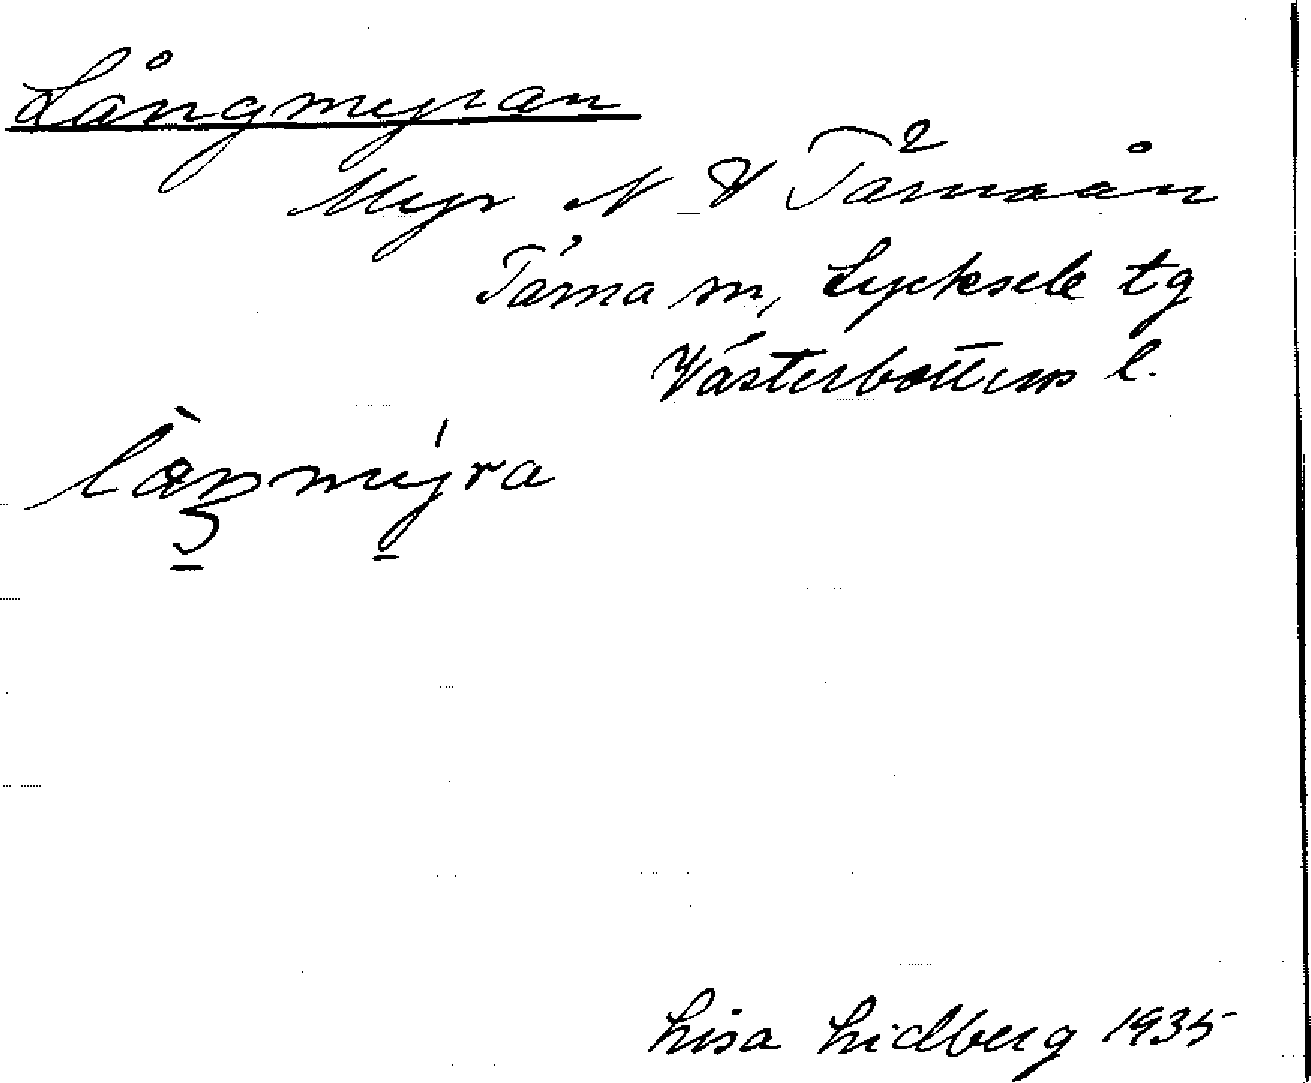 Långmyran
Myr N V Tärnaån
Tärna sn, Lycksele tg
Västerbottens l.
Lisa Lidberg 1935